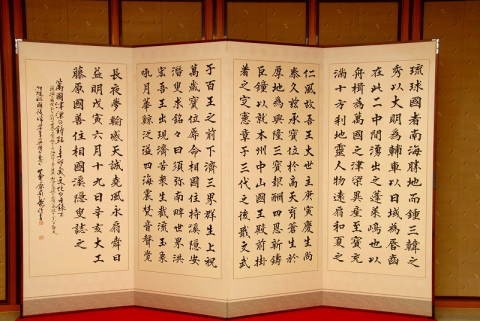 琉球國者南海勝地而鍾三韓之
秀以大明為輔車以日域為唇齒
在此二中間湧出之蓬莱嶋也以
舟楫為萬國之津梁異産至寶充
満十方刹地靈人物遠扇和夏之
仁風故吾王大世主庚寅慶生尚
泰久茲承寶位於高天育蒼生於
厚地為興隆三寶報酬四恩新鑄
巨鐘以就本州中山國王殿前掛
著之定憲章于三代之後戢文武
于百王之前下濟三界群生上祝
萬歳寶位辱命相國住持溪隠安
潜叟求銘々曰須弥南畔世界洪
宏吾王出現濟苦衆生截流玉象
吼月華鯨泛溢四海震梵音聲覺
長夜夢輸感天誠堯風永扇舜日
益明戊寅六月十九日辛亥大工
藤原國善住相國溪隠叟誌之
萬國津梁の鐘銘